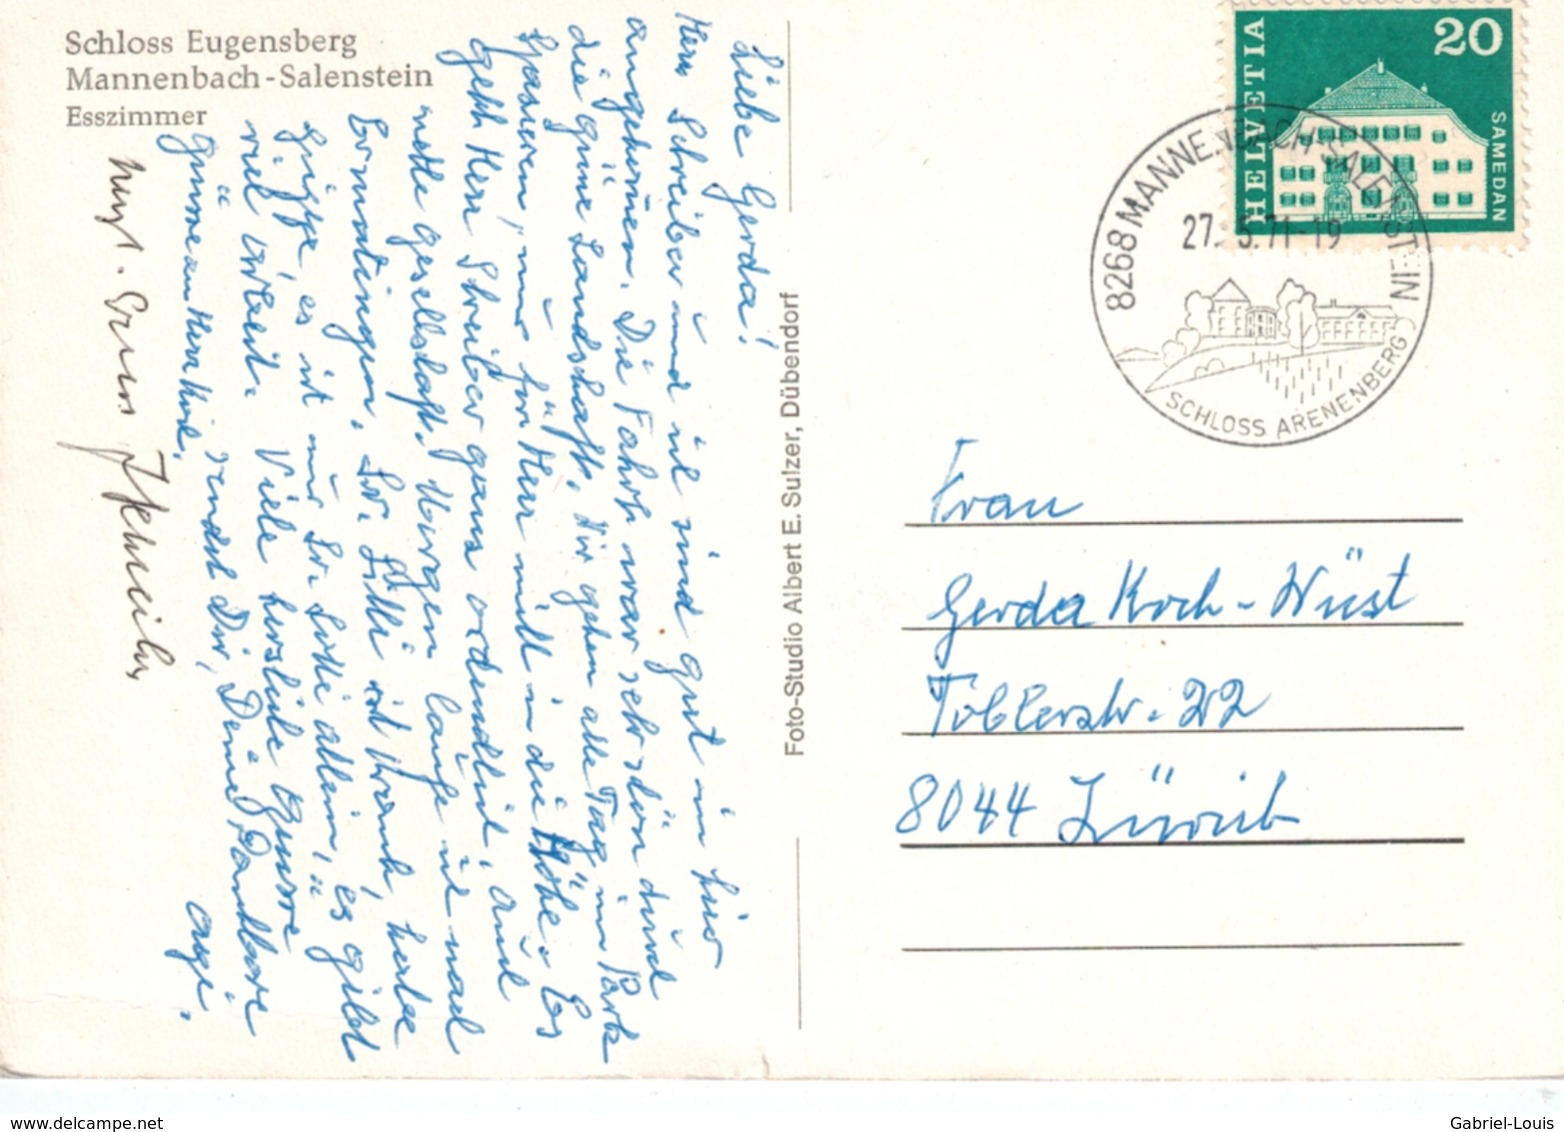 Schloss Eugensberg
Mannenbach-Salenstein
Esszimmer
Liebe Gerda!
Herr Schreiber und ich sind gut in hier
angekommen. Die Fahrt war sehr schön durch
die grüne Landschaft. Wir gehen alle Tag im Park
spazieren, nur für Herr nicht in die Höhe. Es
geht Herr Schreiber ganz ordentlich. Auch
nette Gesellschaft. Morgen laufe ich nach
Ermatingen. Sr. Lilli ist krank, starke
Grippe, es ist nur Sr. Lotti allein, es gibt
viel Arbeit. Viele herzliche Grüsse
sendet Dir, Deine Dankbare
Grüsse an Herr Koch.
Grüss
Foto-Studio Albert E. Sulzer, Dübendorf
HELVETIA
20
SAMEDAN
8268 MANNENBACH-SALENSTEIN
27. 5.71-19
SCHLOSS ARENENBERG
Frau
Gerda Koch-Wüst
Toblerstr. 22
8044 Zürich
www.delcampe.net
Gabriel-Louis